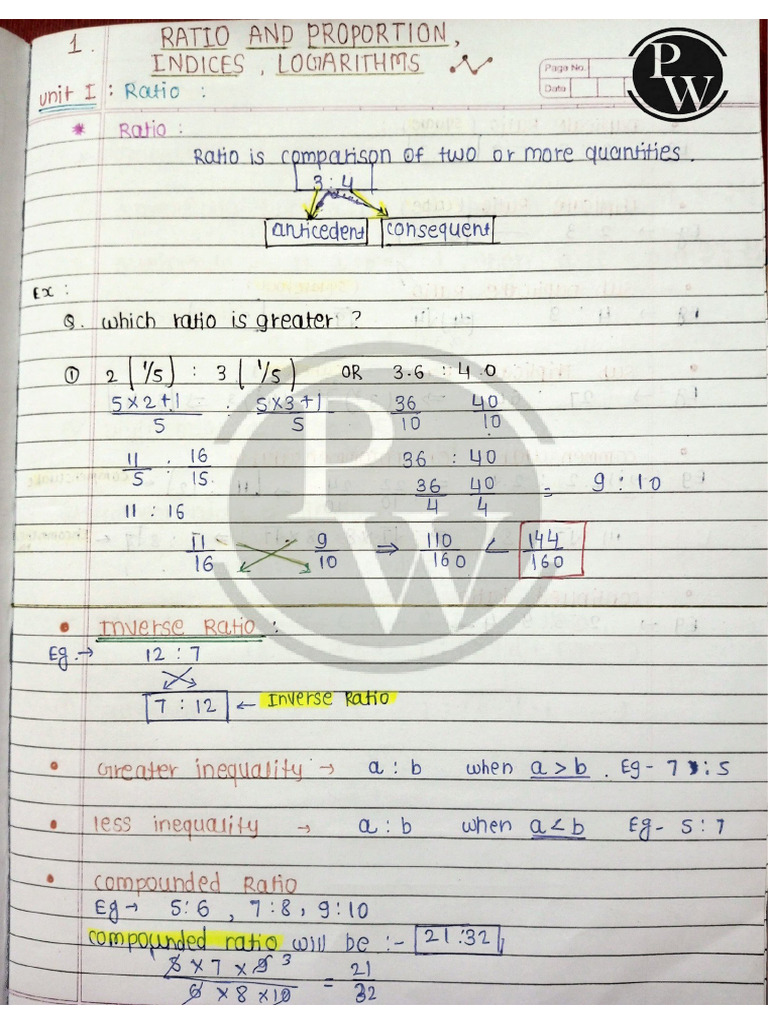 1. RATIO AND PROPORTION,
INDICES, LOGARITHMS
Page No.
Date
PW
unit I : Ratio :
* Ratio :
Ratio is comparison of two or more quantities.
3 : 4
anticedent consequent
Ex :
Q. which ratio is greater ?
① 2 (1/5) : 3 (1/5) OR 3.6 : 4.0
5×2+1/5 : 5×3+1/5 36/10 40/10
11/5 : 16/15. 36 : 40
11 : 16 36/4 40/4 = 9 : 10
11/16 9/10 ⇒ 110/160 < 144/160
• Inverse Ratio :
Eg.→ 12 : 7
7 : 12 ← Inverse Ratio
• Greater inequality → a : b when a > b . Eg- 7 : 5
• less inequality → a : b when a < b Eg- 5 : 7
• compounded Ratio
Eg → 5:6 , 7:8 , 9:10
compounded ratio will be :- 21:32
5 × 7 × 9 3 / 6 × 8 × 10 = 21/32
PW